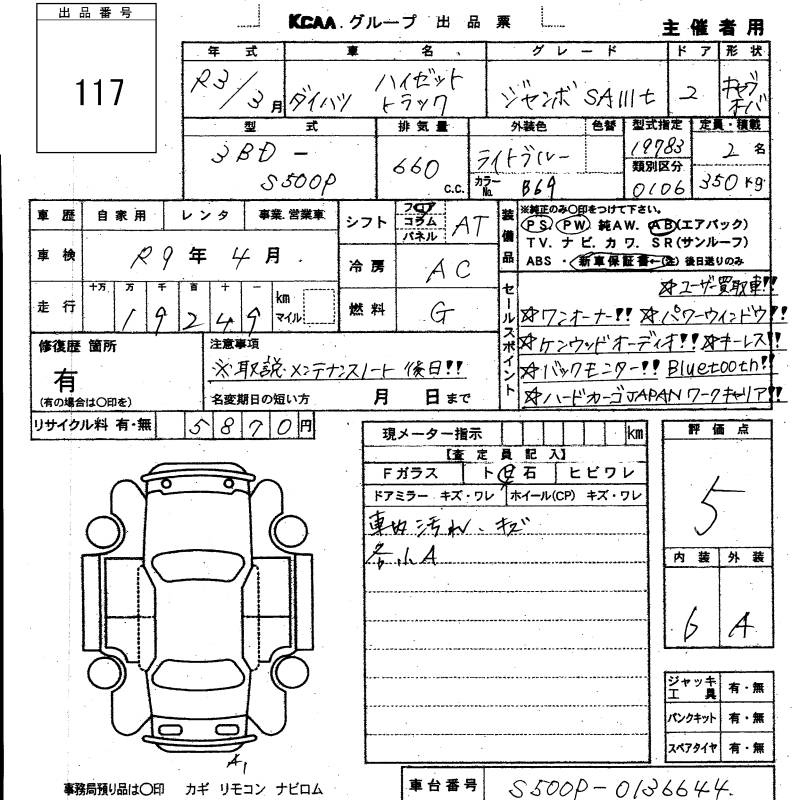 出品番号
117
KCAA グループ 出品票
主催者用
年式 車名 グレード ドア 形状
R3/3月 ダイハツ ハイゼット トラック ジャンボ SAIIIt 2 キャブオーバ
型式 排気量 外装色 色替 型式指定 定員・積載
3BD-S500P 660 C.C. ライトブルー カラーNo. B69 19783 2名
類別区分
0106 350kg
車歴 自家用 レンタ 事業.営業車
シフト フロア コラム パネル AT
装備品
※純正のみ○印をつけて下さい。
PS. PW 純AW. AB(エアバック)
TV. ナビ. カワ. SR(サンルーフ)
ABS ・ 新車保証書←(注) 後日送りのみ
車検 R9年4月
冷房 AC
走行 十万 万 千 百 十 一
19249 km マイル
燃料 G
セールスポイント
☆ユーザー買取車!!
☆ワンオーナー!! ☆パワーウィンドウ!!
☆ケンウッドオーディオ!! ☆キーレス!!
☆バックモニター!! Bluetooth!!
☆ハードカーゴJAPANワークキャリア!!
修復歴 箇所
有
(有の場合は○印を)
注意事項
※取説・メンテナンスノート 後日!!
名変期日の短い方 月 日まで
リサイクル料 有・無 5870円
現メーター指示 km
【査定員記入】
Fガラス ト日石 ヒビワレ
ドアミラー キズ・ワレ ホイール(CP) キズ・ワレ
車内汚れ、キズ
各小A
評価点
5
内装 外装
6 A
ジャッキ工具 有・無
パンクキット 有・無
スペアタイヤ 有・無
A1
事務局預り品は○印 カギ リモコン ナビロム
車台番号 S500P-0136644.